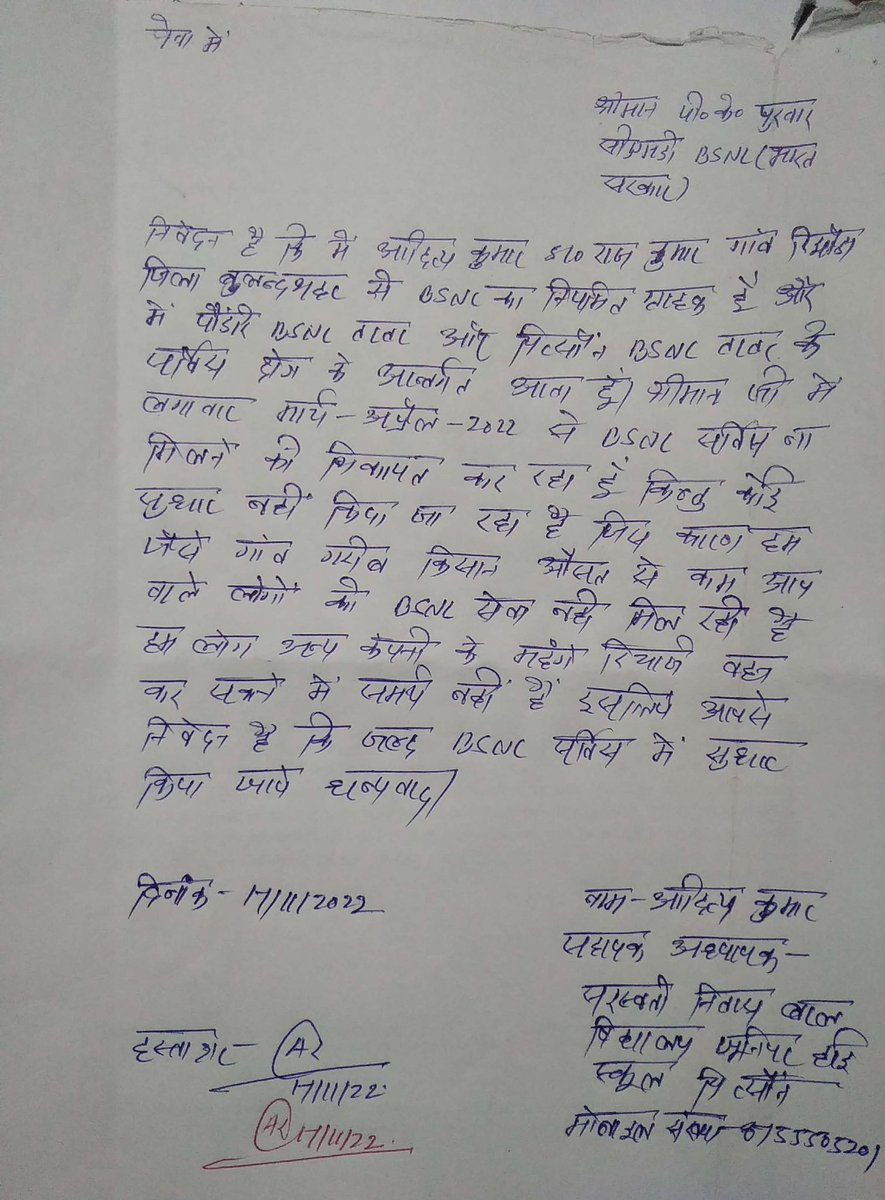 सेवा में
श्रीमान पी०के० पुरवार
सीएमडी BSNL (भारत
सरकार)
निवेदन है कि मैं आदित्य कुमार S/O राज कुमार गांव
जिला बुलन्दशहर से BSNL का नियमित ग्राहक हूँ और
में पौंडरी BSNL टावर और सित्यौन BSNL टावर के
सर्विस क्षेत्र के अन्तर्गत आता हूँ। श्रीमान जी में
लगातार मार्च-अप्रैल-2022 से BSNL सर्विस ना
मिलने की शिकायत कर रहा हूँ किन्तु कोई
सुधार नहीं किया जा रहा है जिस कारण हम
जैसे गांव गरीब किसान औसत से कम आय
वाले लोगों को BSNL सेवा नही मिल रही है
हम लोग अन्य कंपनी के महंगे रिचार्ज वहन
कर सकने में समर्थ नहीं हैं इसलिय आपसे
निवेदन है कि जल्द BSNL सर्विस में सुधार
किया जाये धन्यवाद।
दिनांक - 17/11/2022
नाम - आदित्य कुमार
सहायक अध्यापक -
सरस्वती निवास बाल
विद्यालय जूनियर हाई
स्कूल सित्यौन
हस्ताक्षर - AR
17/11/22
AR 17/11/22.
मोबाइल संख्या -